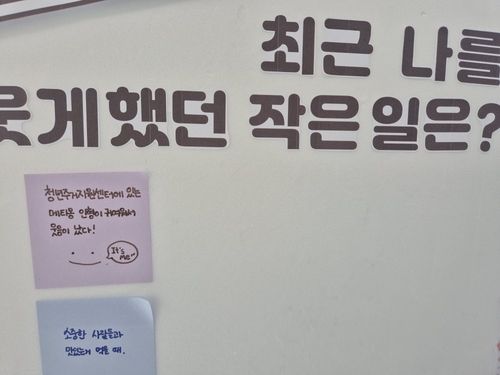 최근 나를
웃게했던 작은 일은?
청년주거지원센터에 있는
메타몽 인형이 귀여워서
웃음이 났다!
It's
ME~
소중한 사람들과
맛있는거 먹을 때.